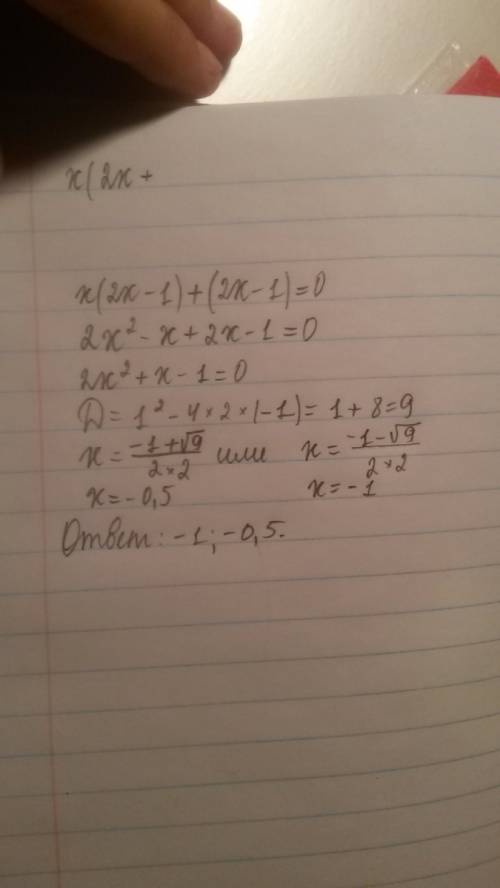 x(2x +
x(2x-1)+(2x-1)=0
2x²-x+2x-1=0
2x²+x-1=0
D=1²-4×2×(-1)=1+8=9
x=(-1+√9)/(2×2) или x=(-1-√9)/(2×2)
x=-0,5 x=-1
Ответ: -1; -0,5.